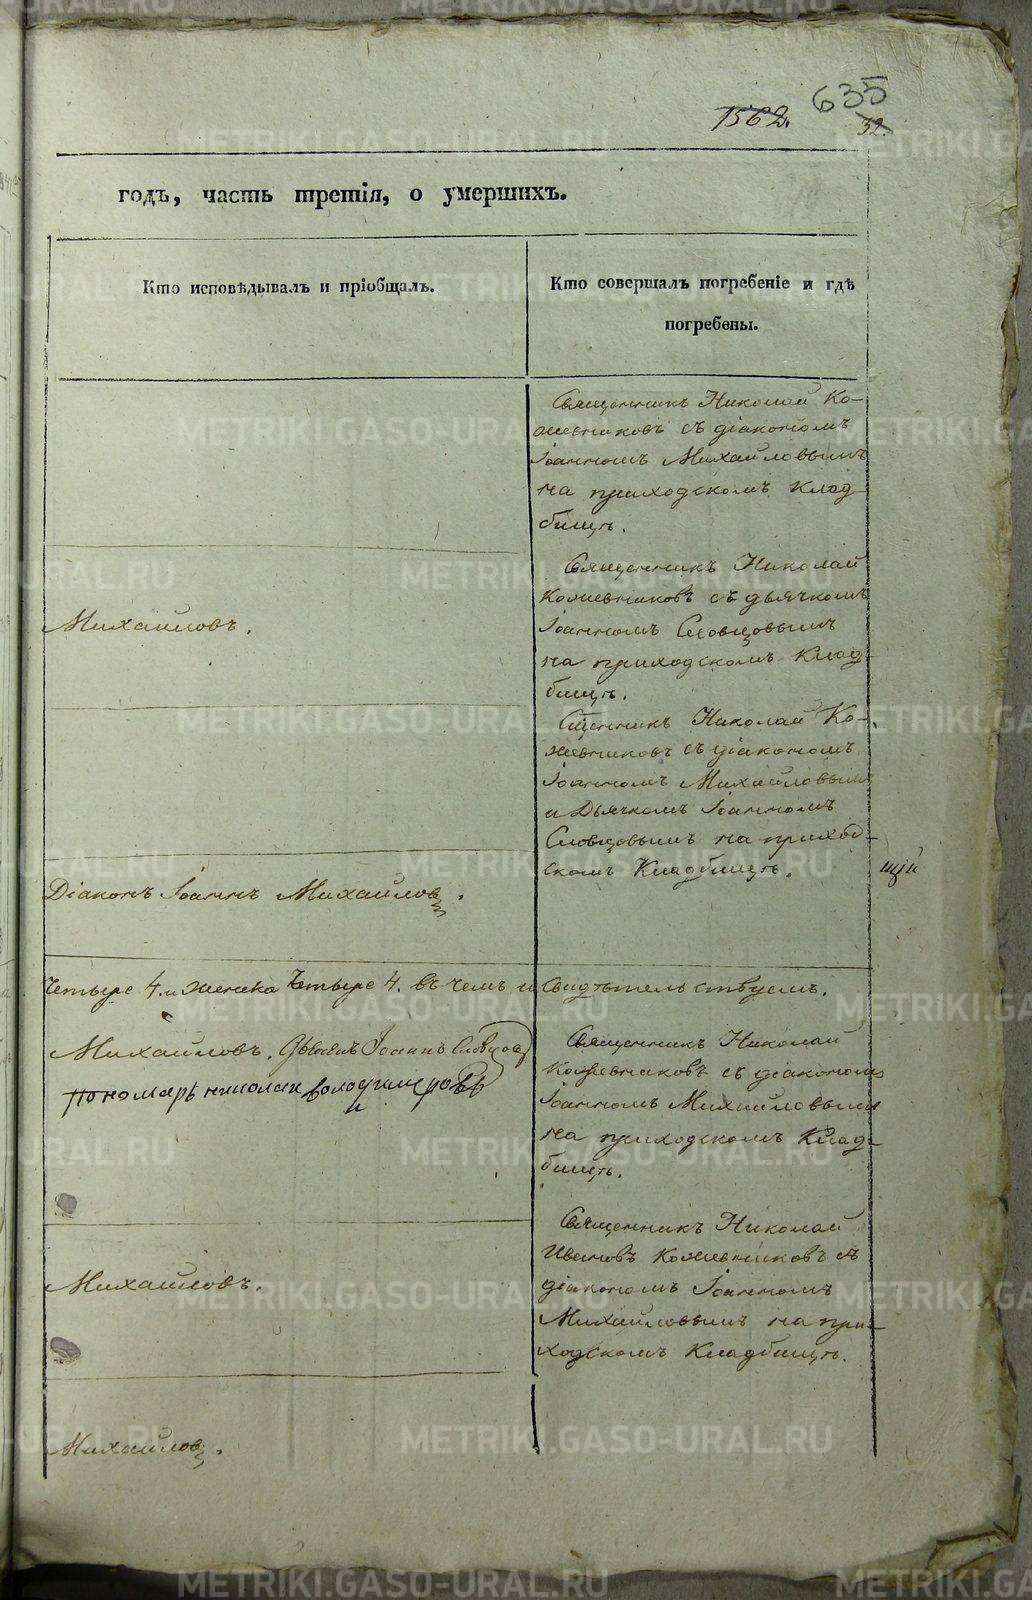 1562. 635
32.
годъ, часть третія, о умершихъ.
Кто исповѣдывалъ и пріобщалъ.
Кто совершалъ погребеніе и гдѣ
погребены.
Священникъ Николай Ко-
жевниковъ съ діакономъ
Іоанномъ Михайловымъ
на приходскомъ Клад-
бищѣ.
Михайловъ.
Священникъ Николай
Кожевниковъ съ дьячкомъ
Іоанномъ Словцовымъ
на приходскомъ Клад-
бищѣ.
Сщенникъ Николай Ко-
жевниковъ съ діакономъ
Іоанномъ Михайловымъ
и Дьячкомъ Іоанномъ
Словцовымъ на приход-
скомъ Кладбищѣ.
щій
Діаконъ Іоаннъ Михайловъ.
Четыре 4. и женска Четыре 4. въ чемъ и свидѣтельствуемъ.
Михайловъ. Іоаннъ Словцовъ
пономарь николай володимеровъ
Священникъ Николай
Кожевниковъ съ діакономъ
Іоанномъ Михайловымъ
на приходскомъ Клад-
бищѣ.
Михайловъ.
Священникъ Николай
Ивановъ Кожевниковъ съ
діакономъ Іоанномъ
Михайловымъ на при-
ходскомъ Кладбищѣ.
Михайловъ.
METRIKI.GASO-URAL.RU